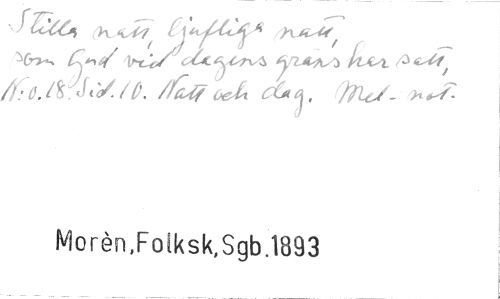 Stilla natt, ljufliga natt,
som Gud vid dagens gräns har satt,
N:o.18. Sid.10. Natt och dag. Mel- not.
Morèn,Folksk,Sgb.1893